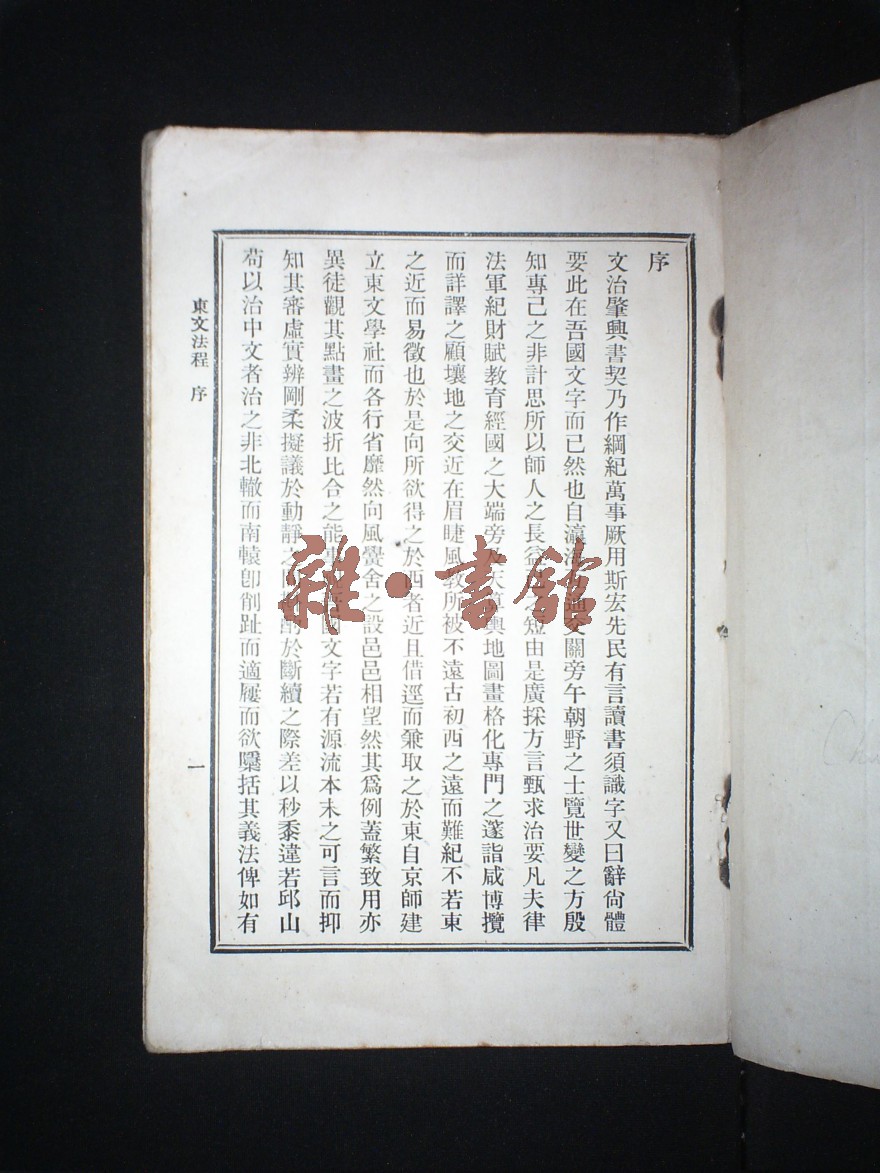 序
文治肇興書契乃作綱紀萬事厥用斯宏先民有言讀書須識字又曰辭尙體
要此在吾國文字而已然也自瀛海通交關旁午朝野之士覽世變之方殷
知專己之非計思所以師人之長益短由是廣採方言甄求治要凡夫律
法軍紀財賦教育經國之大端旁及天算輿地圖畫格化專門之邃詣咸博攬
而詳譯之顧壤地之交近在眉睫風教所被不遠古初西之遠而難紀不若東
之近而易徵也於是向所欲得之於西者近且借逕而兼取之於東自京師建
立東文學社而各行省靡然向風黌舍之設邑邑相望然其爲例蓋繁致用亦
異徒觀其點畫之波折比合之能國文字若有源流本末之可言而抑
知其審虛實辨剛柔擬議於動靜之於斷續之際差以秒黍違若邱山
苟以治中文者治之非北轍而南轅卽削趾而適屨而欲櫽括其義法俾如有
東文法程 序
一
雜·書館